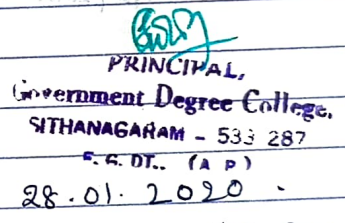 PRINCIPAL,
Government Degree College,
SITHANAGARAM - 533 287
E. G. DT., (A P)
28.01.2020.